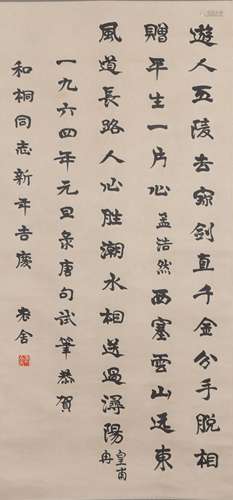 遊人五陵去寶劍直千金分手脫相
贈平生一片心孟浩然西塞雲山遠東
風道長路人心勝潮水相送過潯陽皇甫冉
一九六四年元旦录唐句試筆恭賀
和桐同志新年吉慶
老舍